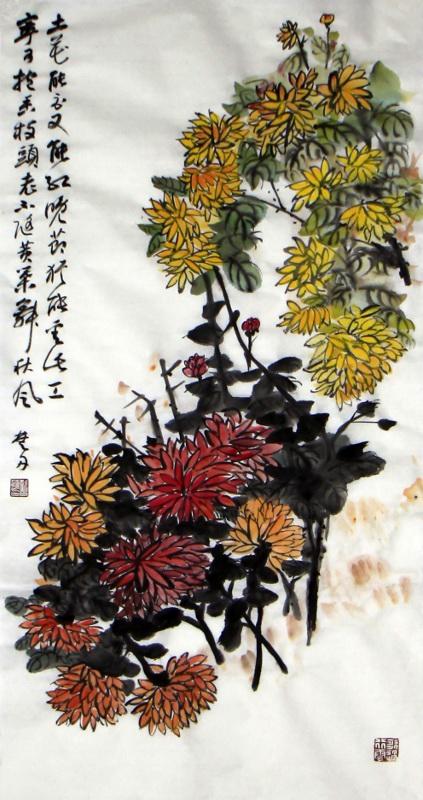 土花能白又能红晚节犹能爱此工
寧可抱香枝頭老不随黄葉舞秋风